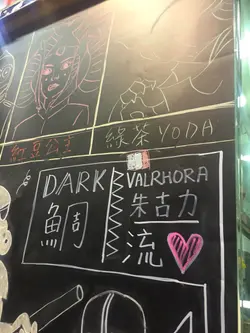 紅豆公主
綠茶YODA
DARK
鯛
VALRHORA
朱古力
流